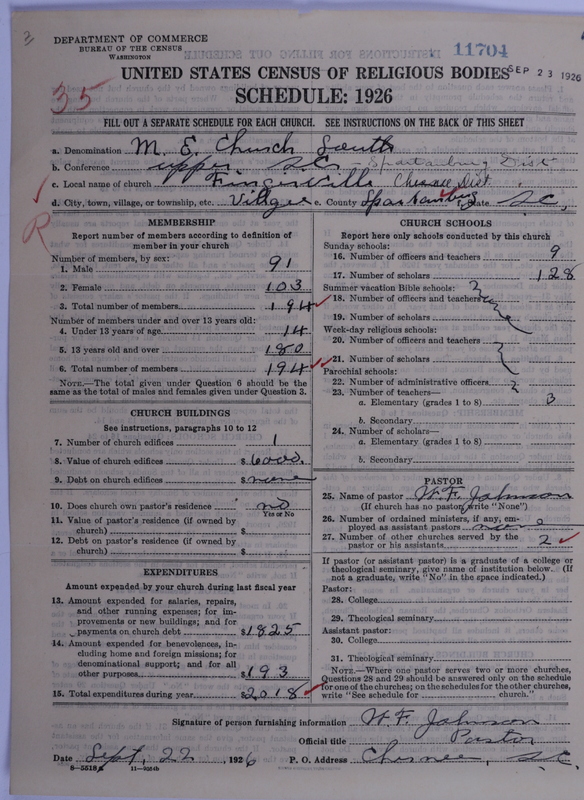 DEPARTMENT OF COMMERCE
BUREAU OF THE CENSUS
WASHINGTON
11704
SEP 23 1926
35
UNITED STATES CENSUS OF RELIGIOUS BODIES
SCHEDULE: 1926
FILL OUT A SEPARATE SCHEDULE FOR EACH CHURCH. SEE INSTRUCTIONS ON THE BACK OF THIS SHEET
a. Denomination M. E. Church South
b. Conference upper S.C. - Spartanburg Dist
c. Local name of church Fingerville Chesnee Dist.
d. City, town, village, or township, etc. Village e. County Spartanburg State S.C.
R
MEMBERSHIP
Report number of members according to definition of member in your church
Number of members, by sex:
1. Male 91
2. Female 103
3. Total number of members 194
Number of members under and over 13 years old:
4. Under 13 years of age 14
5. 13 years old and over 180
6. Total number of members 194
NOTE.—The total given under Question 6 should be the same as the total of males and females given under Question 3.
CHURCH BUILDINGS
See instructions, paragraphs 10 to 12
7. Number of church edifices 1
8. Value of church edifices $6000.
9. Debt on church edifices $none
10. Does church own pastor's residence no
Yes or No
11. Value of pastor's residence (if owned by church) $
12. Debt on pastor's residence (if owned by church) $
EXPENDITURES
Amount expended by your church during last fiscal year
13. Amount expended for salaries, repairs, and other running expenses; for improvements or new buildings; and for payments on church debt $1825
14. Amount expended for benevolences, including home and foreign missions; for denominational support; and for all other purposes $193
15. Total expenditures during year $2018
CHURCH SCHOOLS
Report here only schools conducted by this church
Sunday schools:
16. Number of officers and teachers 9
17. Number of scholars 128
Summer vacation Bible schools:
18. Number of officers and teachers
19. Number of scholars
Week-day religious schools:
20. Number of officers and teachers
21. Number of scholars
Parochial schools:
22. Number of administrative officers
23. Number of teachers—
a. Elementary (grades 1 to 8) 3
b. Secondary
24. Number of scholars—
a. Elementary (grades 1 to 8)
b. Secondary
PASTOR
25. Name of pastor W. F. Johnson
(If church has no pastor, write "None")
26. Number of ordained ministers, if any, employed as assistant pastors none
27. Number of other churches served by the pastor or his assistants 2
If pastor (or assistant pastor) is a graduate of a college or theological seminary, give name of institution below. (If not a graduate, write "No" in the space indicated.)
Pastor:
28. College
29. Theological seminary
Assistant pastor:
30. College
31. Theological seminary
NOTE.—Where one pastor serves two or more churches, Questions 28 and 29 should be answered only on the schedule for one of the churches; on the schedules for the other churches, write "See schedule for church."
Signature of person furnishing information W. F. Johnson
Official title Pastor
Date Sept. 22, 1926 P. O. Address Chesnee, S.C.